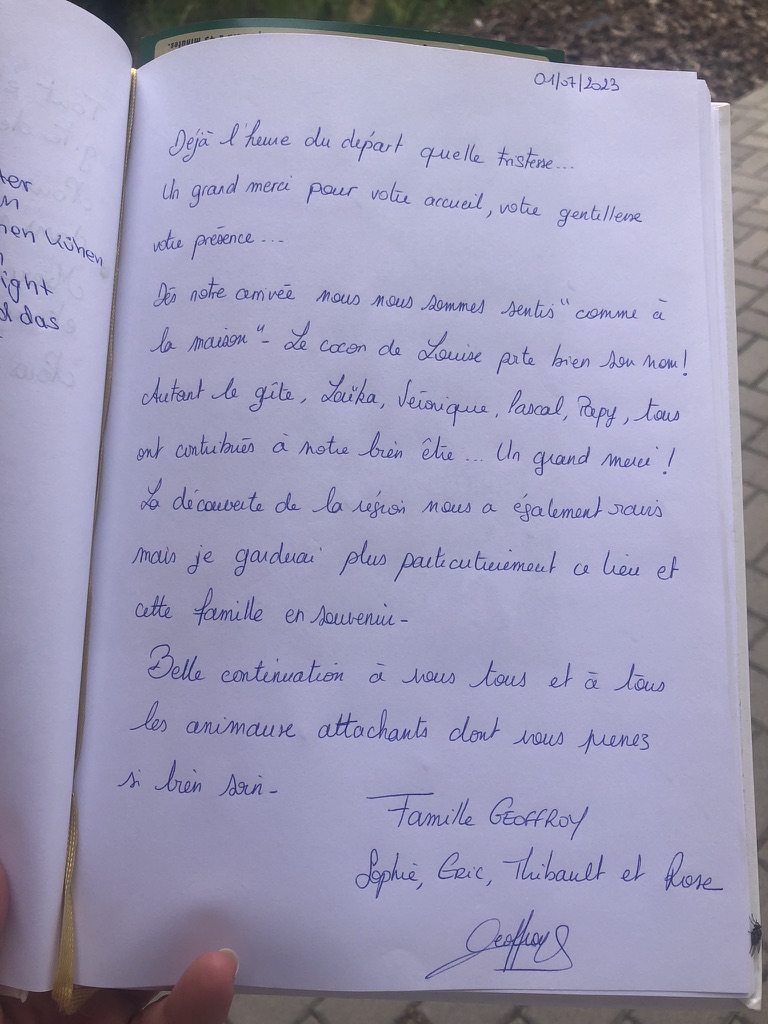 45 minutes.
01/07/2023
Déjà l'heure du départ quelle tristesse...
Un grand merci pour votre accueil, votre gentillesse
votre présence...
Dès notre arrivée nous nous sommes sentis "comme à
la maison" - Le cocon de Louise porte bien son nom!
Autant le gîte, Laïka, Véronique, Pascal, Papy, tous
ont contribués à notre bien être... Un grand merci !
La découverte de la région nous a également ravis
mais je garderai plus particulièrement ce lieu et
cette famille en souvenir -
Belle continuation à vous tous et à tous
les animaux attachants dont vous prenez
si bien soin -
Famille GEOFFROY
Sophie, Eric, Thibault et Rose
Geoffroy S
ter
n
hen Kühen
n
ight
d das